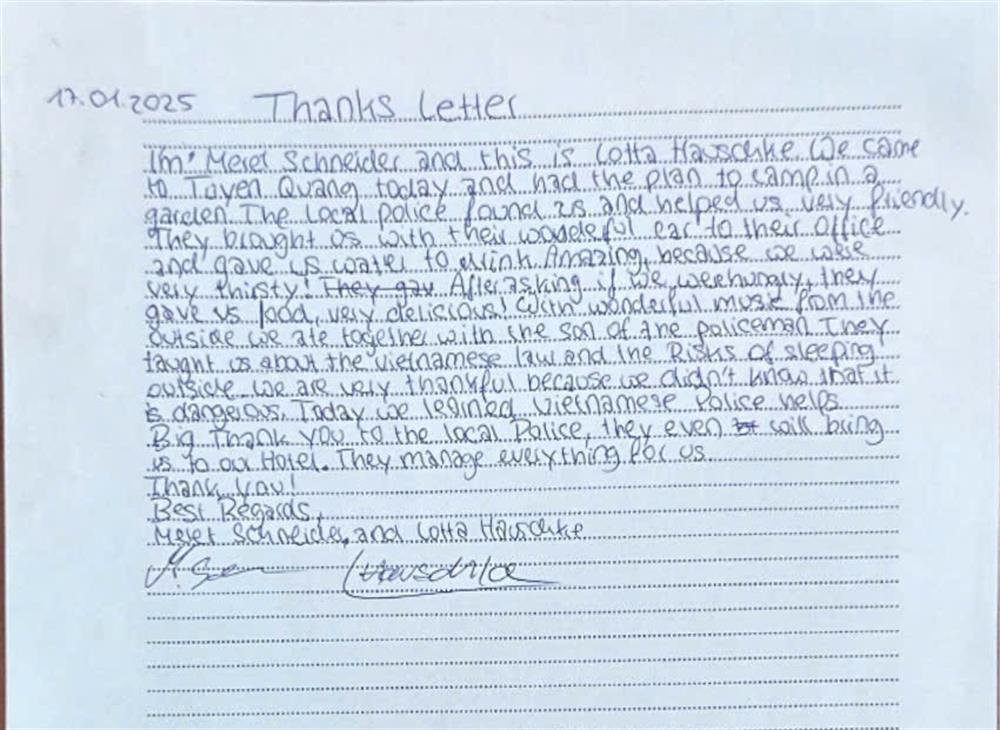 17.01.2025 Thanks Letter
I'm' Meret Schneider and this is Lotta Hauschke. We came
to Tuyen Quang today and had the plan to camp in a
garden. The local police found us and helped us very friendly.
They brought us with their wonderful car to their office
and gave us water to drink. Amazing, because we were
very thirsty! They gav After asking if we werehungry, they
gave us food, very delicious! With wonderful music from the
outside we ate together with the son of the policeman. They
taught us about the vietnamese law and the Risks of sleeping
outside. We are very thankful because we didn't know that it
is dangerous. Today we learned Vietnamese Police helps.
Big Thank you to the local Police, they even will bring
us to our Hotel. They manage everything for us.
Thank you!
Best Regards,
Meret Schneider, and Lotta Hauschke